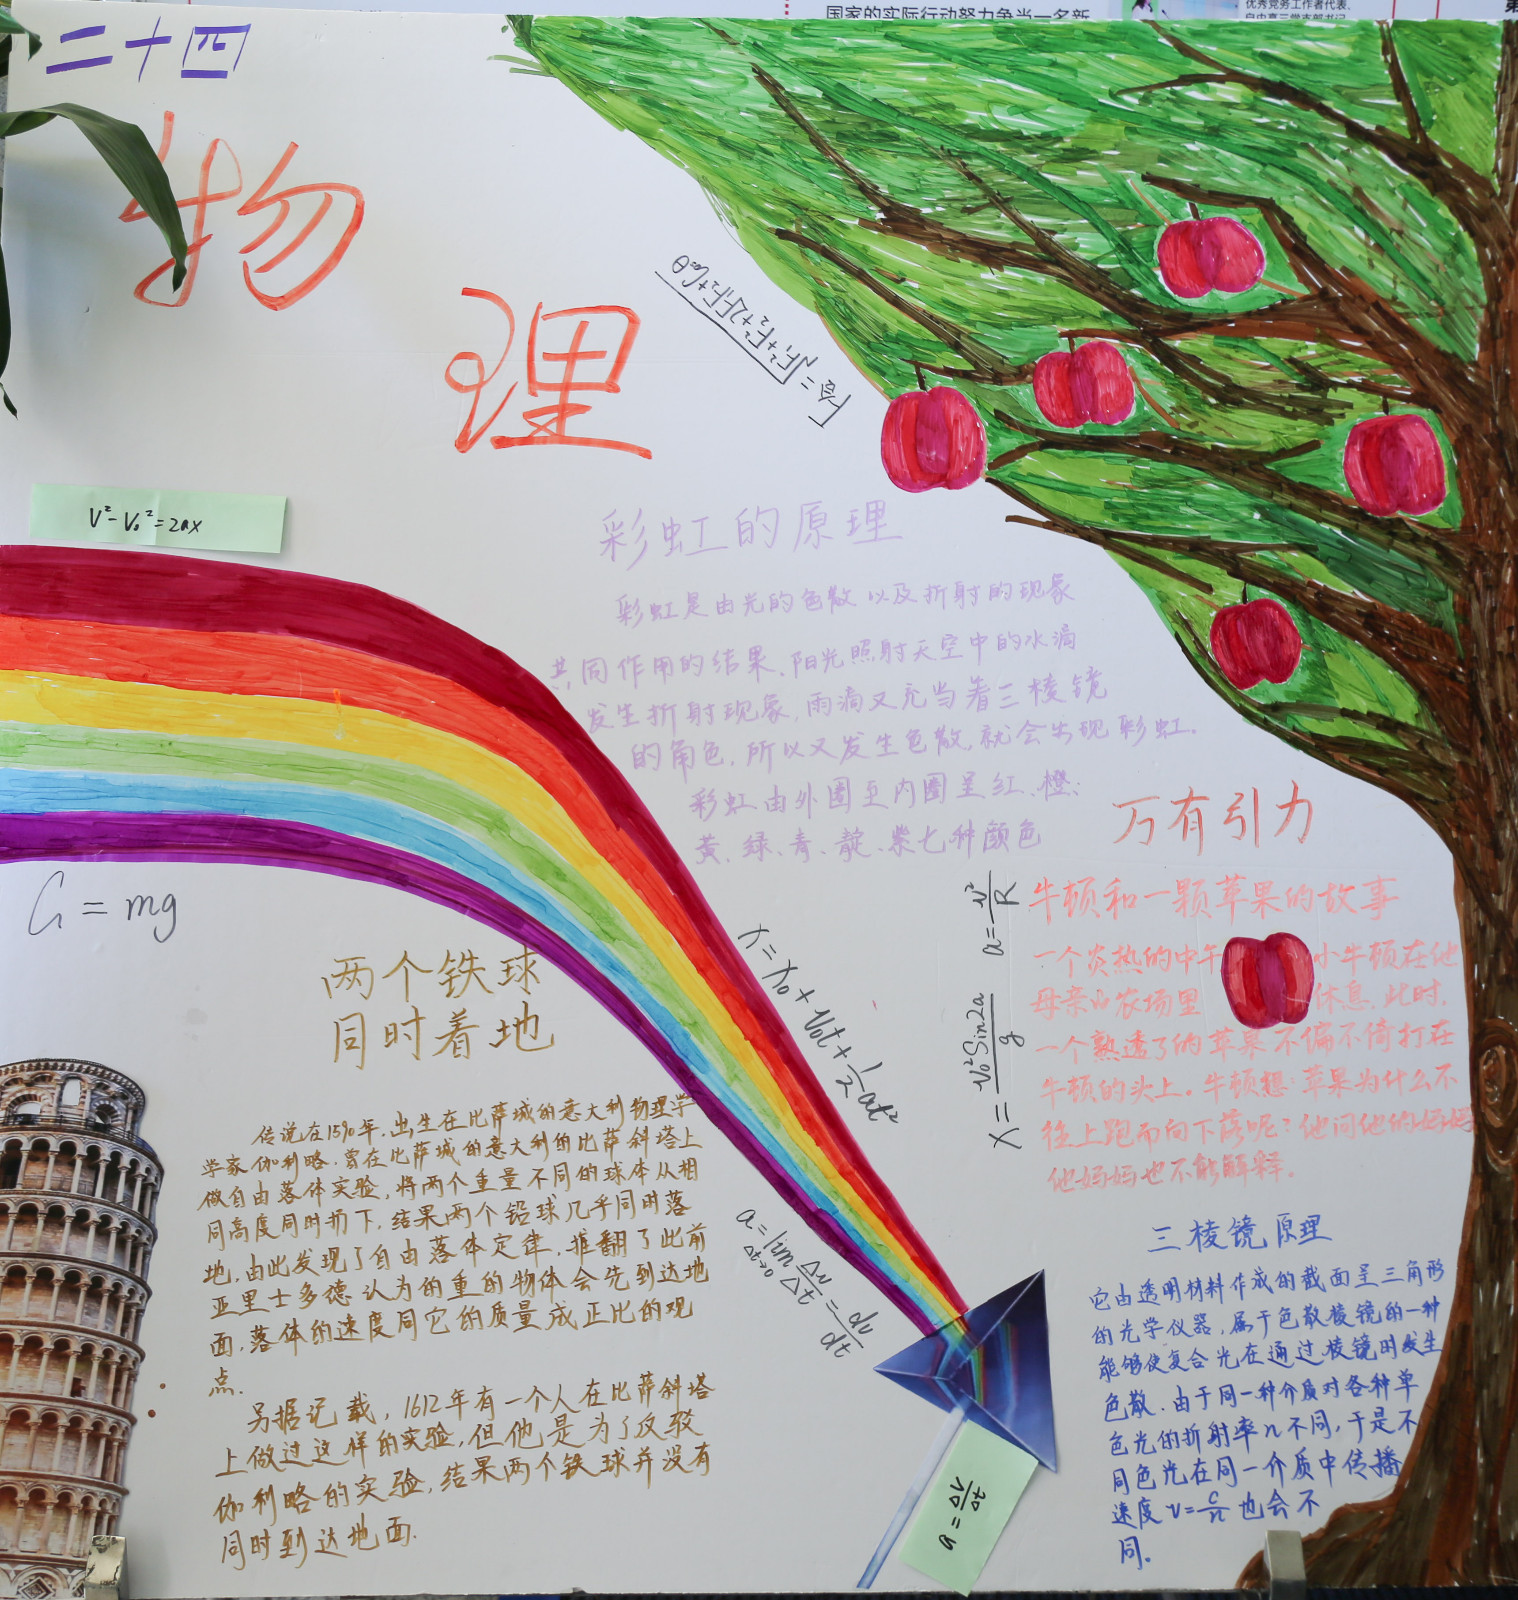 国家的实际行动努力争当一名新
优秀党务工作者代表、
二十四
物
理
F合=√F₁²+F₂²+2F₁F₂+Cosθ
V²-V₀²=2ax
彩虹的原理
彩虹是由光的色散以及折射的现象
共同作用的结果.阳光照射天空中的水滴
发生折射现象,雨滴又充当着三棱镜
的角色,所以又发生色散,就会出现彩虹.
彩虹由外圈至内圈呈红、橙、
黄、绿、青、靛、紫七种颜色
G=mg
两个铁球
同时着地
传说在1590年,出生在比萨城的意大利物理学
学家伽利略,曾在比萨城的意大利的比萨斜塔上
做自由落体实验,将两个重量不同的球体从相
同高度同时扔下,结果两个铅球几乎同时落
地,由此发现了自由落体定律,推翻了此前
亚里士多德认为的重的物体会先到达地
面,落体的速度同它的质量成正比的观
点.
另据记载,1612年有一个人在比萨斜塔
上做过这样的实验,但他是为了反驳
伽利略的实验,结果两个铁球并没有
同时到达地面.
x=x₀+v₀t+1/2at²
a=lim Δt→0 Δv/Δt=dv/dt
a=v²/R
x=v₀²Sin2a/g
万有引力
牛顿和一颗苹果的故事
一个炎热的中午 小牛顿在他
母亲的农场里 休息,此时,
一个熟透了的苹果不偏不倚打在
牛顿的头上。牛顿想:苹果为什么不
往上跑而向下落呢?他问他的妈妈
他妈妈也不能解释.
三棱镜原理
它由透明材料作成的截面呈三角形
的光学仪器,属于色散棱镜的一种
能够使复合光在通过棱镜时发生
色散.由于同一种介质对各种单
色光的折射率n不同,于是不
同色光在同一介质中传播
速度v=c/n也会不
同。
a=ΔV/Δt